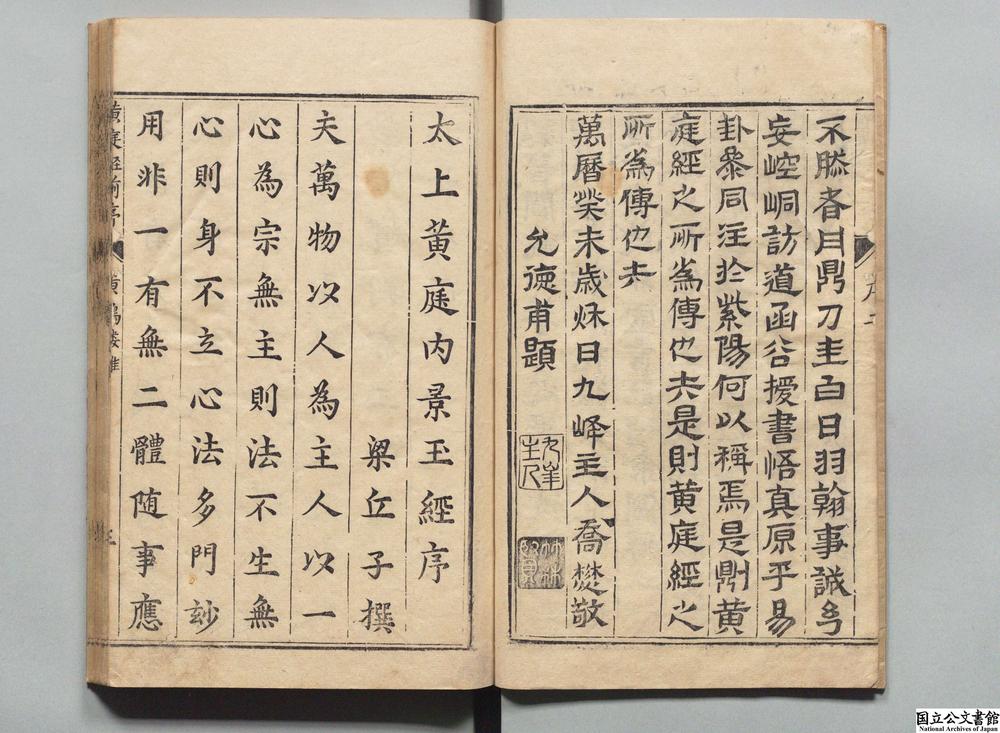 不勝者月鼎刀圭白日羽翰事誠兮
妄崆峒訪道函谷授書悟真原乎易
卦叅同注於紫陽何以稱焉是鼎黄
庭經之所為傳也夫是則黄庭經之
所為傳也夫
萬曆癸未歲秌日九峰主人喬懋敬
允德甫題
九峯
主人
太上黃庭内景玉經序
梁丘子撰
夫萬物以人為主人以一
心為宗無主則法不生無
心則身不立心法多門玅
用非一有無二體随事應
黃庭經前序
國立公文書館
National Archives of Japan